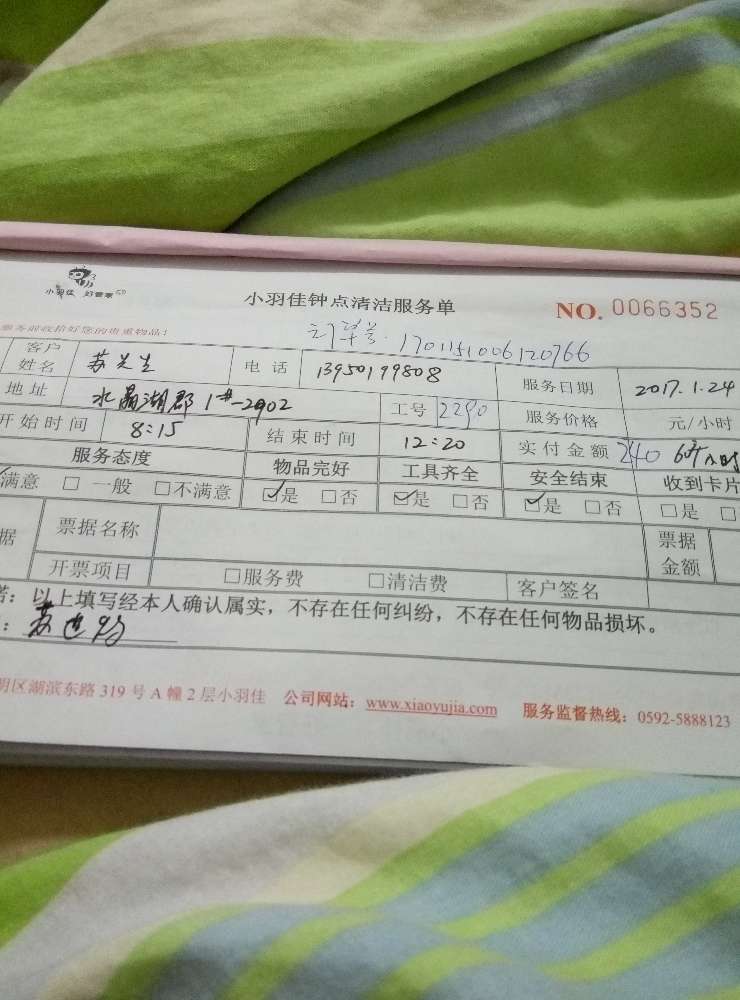 小羽佳 好管家
小羽佳钟点清洁服务单 NO. 0066352
服务前收拾好您的贵重物品!
订单号: 1701151006120766
客户姓名 苏先生 电话 13950199808 服务日期 2017.1.24
地址 水晶湖郡 1#-2902 工号 2290 服务价格 元/小时
开始时间 8:15 结束时间 12:20 实付金额 240
服务态度 物品完好 工具齐全 安全结束 收到卡片
满意 □ 一般 □不满意 ☑是 □否 ☑是 □否 ☑是 □否 □是 □
据 票据名称 票据金额
开票项目 □服务费 □清洁费 客户签名
诺: 以上填写经本人确认属实,不存在任何纠纷,不存在任何物品损坏。
: 苏
明区湖滨东路 319 号 A 幢 2 层小羽佳 公司网站: www.xiaoyujia.com 服务监督热线: 0592-5888123